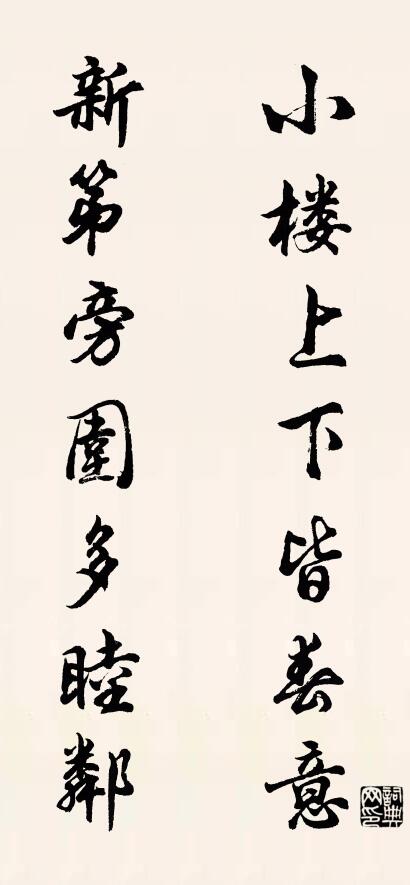 小楼上下皆春意
新第旁圍多睦鄰
詞典網印